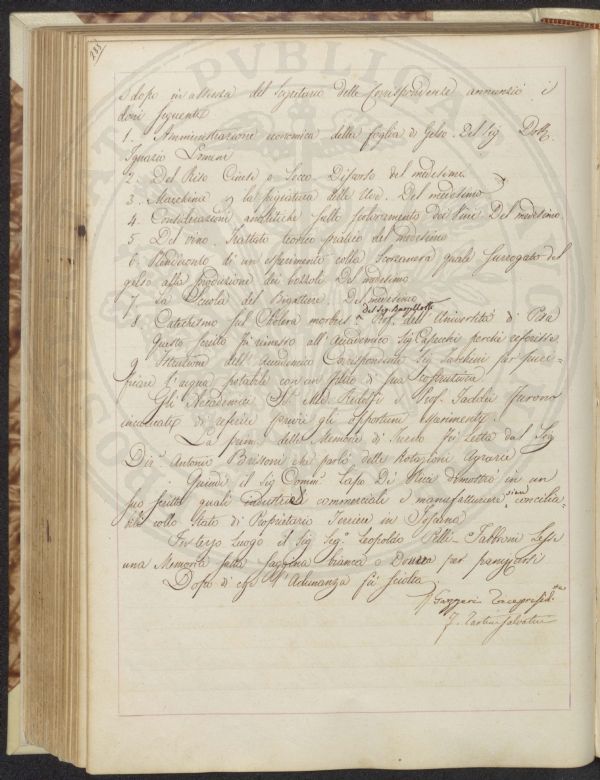 233
e dopo in assenza del Segretario delle Corrispondenze annunziò i
doni seguenti
1. Amministrazione economica della foglia di Gelso. Del Sig. Dott.
Ignazio Lomeni
2. Del Riso Cinese o Secco. Discorso del medesimo.
3. Macchina p. la pigiatura delle Uve. Del medesimo
4. Considerazioni analitiche sullo Del medesimo.
5. Del vino. Trattato teorico pratico del medesimo
6. Rendiconto di un esperimento colla Scorzonera quale surrogato del
gelso alla produzione dei bozzoli. Del medesimo
7. La Scuola del Bigattiere. Del medesimo
del Sig.
8. Catechismo sul Cholera morbus Prof. dell'Università di Pisa
Questo scritto fù rimesso all'Accademico Sig. perchè referisse
9. Istruzione dell'Accademico Corrispondente Sig. per
l'acqua potabile con un filtro di sua
Gli Accademici Ridolfi e Prof. Taddei furono
incaricati di referire previi gli opportuni sperimenti.
La prima delle Memorie di Turno fù letta dal Sig.
Dir. Antonio che parlò delle Rotazioni Agrarie
Quindi il Sig. Comm. Lapo De' Ricci dimostrò in un
suo scritto quali industrie commerciali e manufatturiere sieno concilia-
bili collo stato di Proprietario Terriere in Toscana
In terzo luogo il Sig. Seg. Leopoldo Pelli-Fabbroni lesse
una Memoria sulla Saggina bianca o Dourra per
Dopo di che l'Adunanza fù sciolta.
Gazzeri Vicepresid.te
Tartini Salvatici